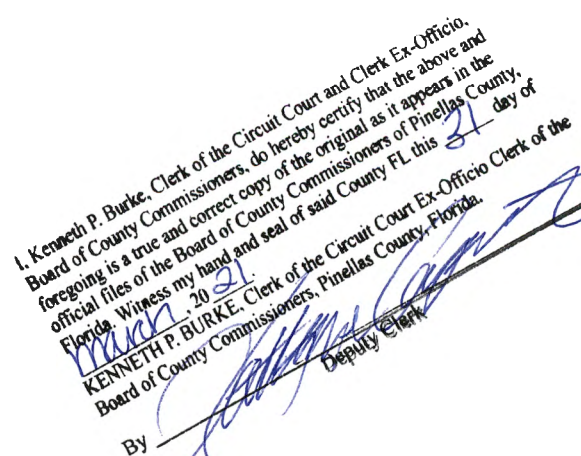 I, Kenneth P. Burke, Clerk of the Circuit Court and Clerk Ex-Officio,
Board of County Commissioners, do hereby certify that the above and
foregoing is a true and correct copy of the original as it appears in the
official files of the Board of County Commissioners of Pinellas County,
Florida. Witness my hand and seal of said County FL this 31 day of
March, 20 21.
KENNETH P. BURKE, Clerk of the Circuit Court Ex-Officio Clerk of the
Board of County Commissioners, Pinellas County, Florida.
By
Deputy Clerk